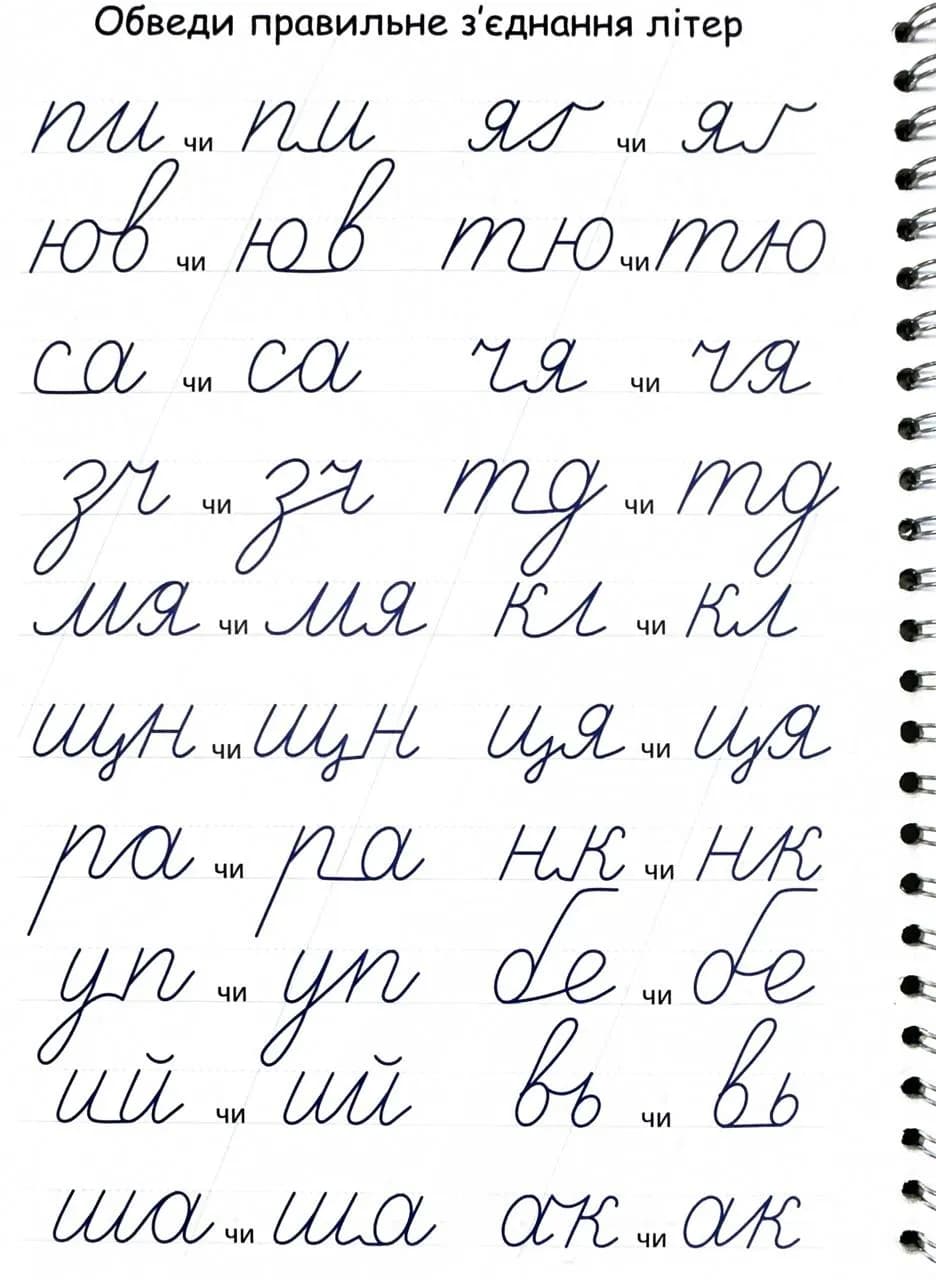 Обведи правильне з'єднання літер
пи чи пи яґ чи яґ
юв чи юв тю чи тю
са чи са чя чи чя
зч чи зч тд чи тд
мя чи мя кл чи кл
щн чи щн ця чи ця
ра чи ра нк чи нк
уп чи уп бе чи бе
ий чи ий вь чи вь
ша чи ша ак чи ак